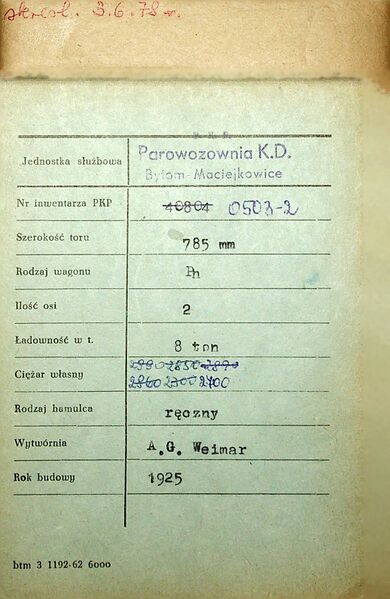 skreśl. 3.6.78 r.
P. K. P.
Jednostka służbowa Parowozownia K.D.
Bytom-Maciejkowice
Nr inwentarza PKP 40804 0503-2
Szerokość toru 785 mm
Rodzaj wagonu Ph
Ilość osi 2
Ładowność w t. 8 ton
Ciężar własny 2850
2860 2400
Rodzaj hamulca ręczny
Wytwórnia A.G. Weimar
Rok budowy 1925
btm 3 1192-62 6000